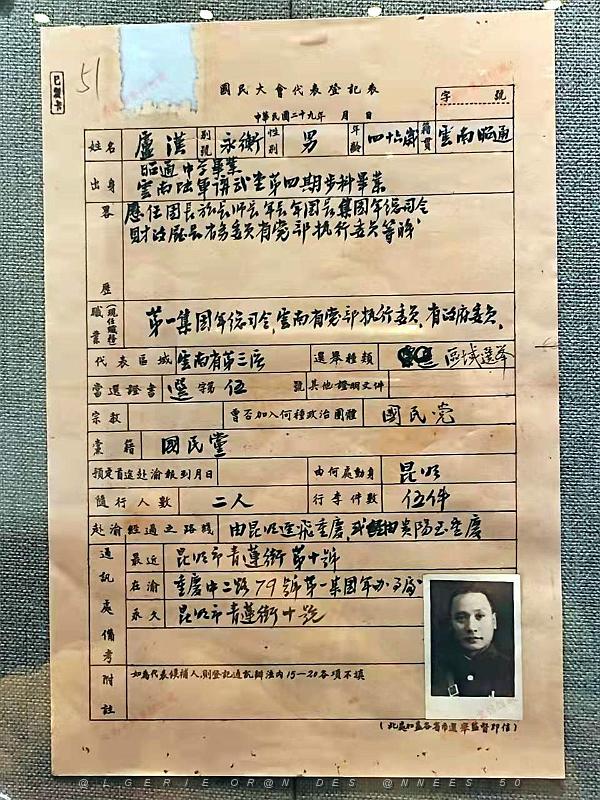 51
已製卡
國民大會代表登記表
字 號
中華民國二十九年 月 日
姓名 盧漢 別號 永衡 性別 男 年齡 四十六歲 籍貫 雲南昭通
出身 昭通中學畢業
雲南陸軍講武堂第四期步科畢業
畧歷 歷任團長旅長師長軍長軍團長集團軍總司令
財政廳長省務委員省党部执行委員等職
職業(現任職務) 第一集團軍總司令,雲南省党部执行委員,省政府委員,
代表區域 雲南省第三區 選舉種類 區域選举
當選證書 選字第伍號 其他證明文件
宗教 曾否加入何種政治團體 國民党
黨籍 國民黨
預定首途赴渝報到月日 由何處動身 昆明
隨行人數 二人 行李件數 伍件
赴渝經過之路綫 由昆明逕飛重慶,或經由貴陽至重慶
通訊處 最近 昆明市青蓮街第十號
在渝 重慶中二路79號第一集團軍办事處
永久 昆明市青蓮街十號
備考
附註 如為代表候補人,則登記通訊辦法內15—20各項不填
(此處加蓋各省市選舉監督印信)
@LGERIE OR@N DES @NNEES 50